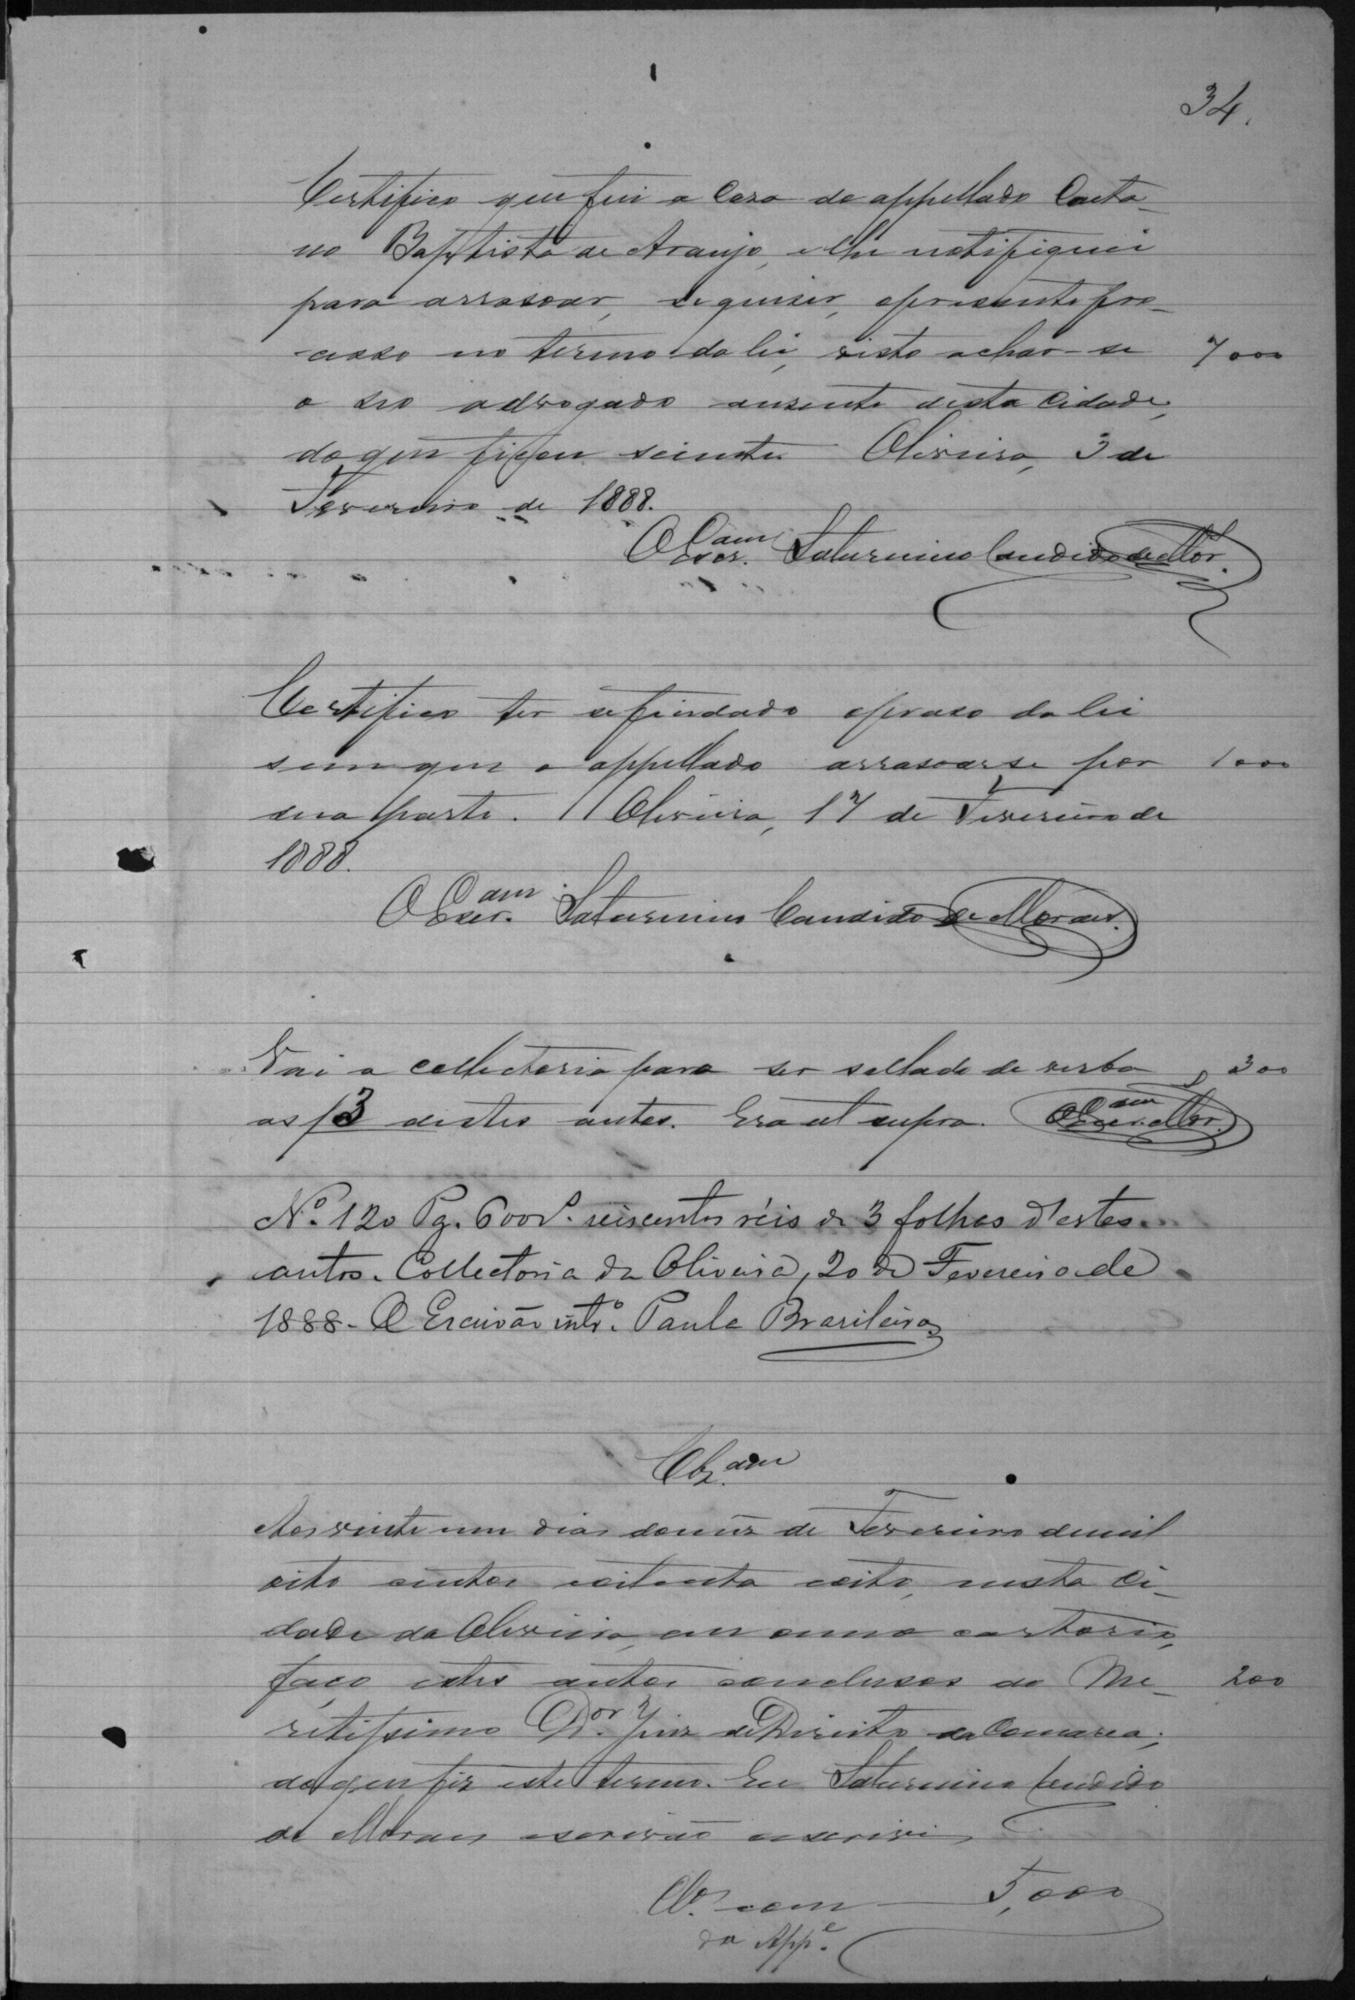 34.
Certifico que fui a Casa do appellado Caeta-
no Baptista de Araujo, e lhe notifiquei
para arrasoar, se quiser, o presente pro-
cesso no termo da lei, visto achar-se 7000
o seo advogado ausente desta Cidade,
do que ficou sciente. Oliveira, 3 de
Fevereiro de 1888.
O Escr.am Saturnino Candido de Mor.
Certifico ter se findado o praso da lei
sem que o appellado arrasoasse por 1000
sua parte. Oliveira, 17 de Fevereiro de
1888.
O Escr.am Saturnino Candido de Moraes.
Vai a collectoria para ser sellado de verba 300
as f 3 destes autos. Era ut supra. O Escr.am Mor.
Nº. 120 Pg. 600 rs. seiscentos réis de 3 folhas d'estes
autos. Collectoria da Oliveira, 20 de Fevereiro de
1888. O Escrivão intº. Paula Brasileiro
Clz.am
Aos vinte um dias do mez de Fevereiro de mil
oito centos e oitenta e oito, nesta Ci-
dade da Oliveira, em o meo cartorio,
faço estes autos conclusos ao Me- 200
retissimo Dor. Juiz de Direito da Comarca;
do que fiz este termo. Eu Saturnino Candido
de Moraes escrivão o escrivi
Clo. com 5,000
da Appe.